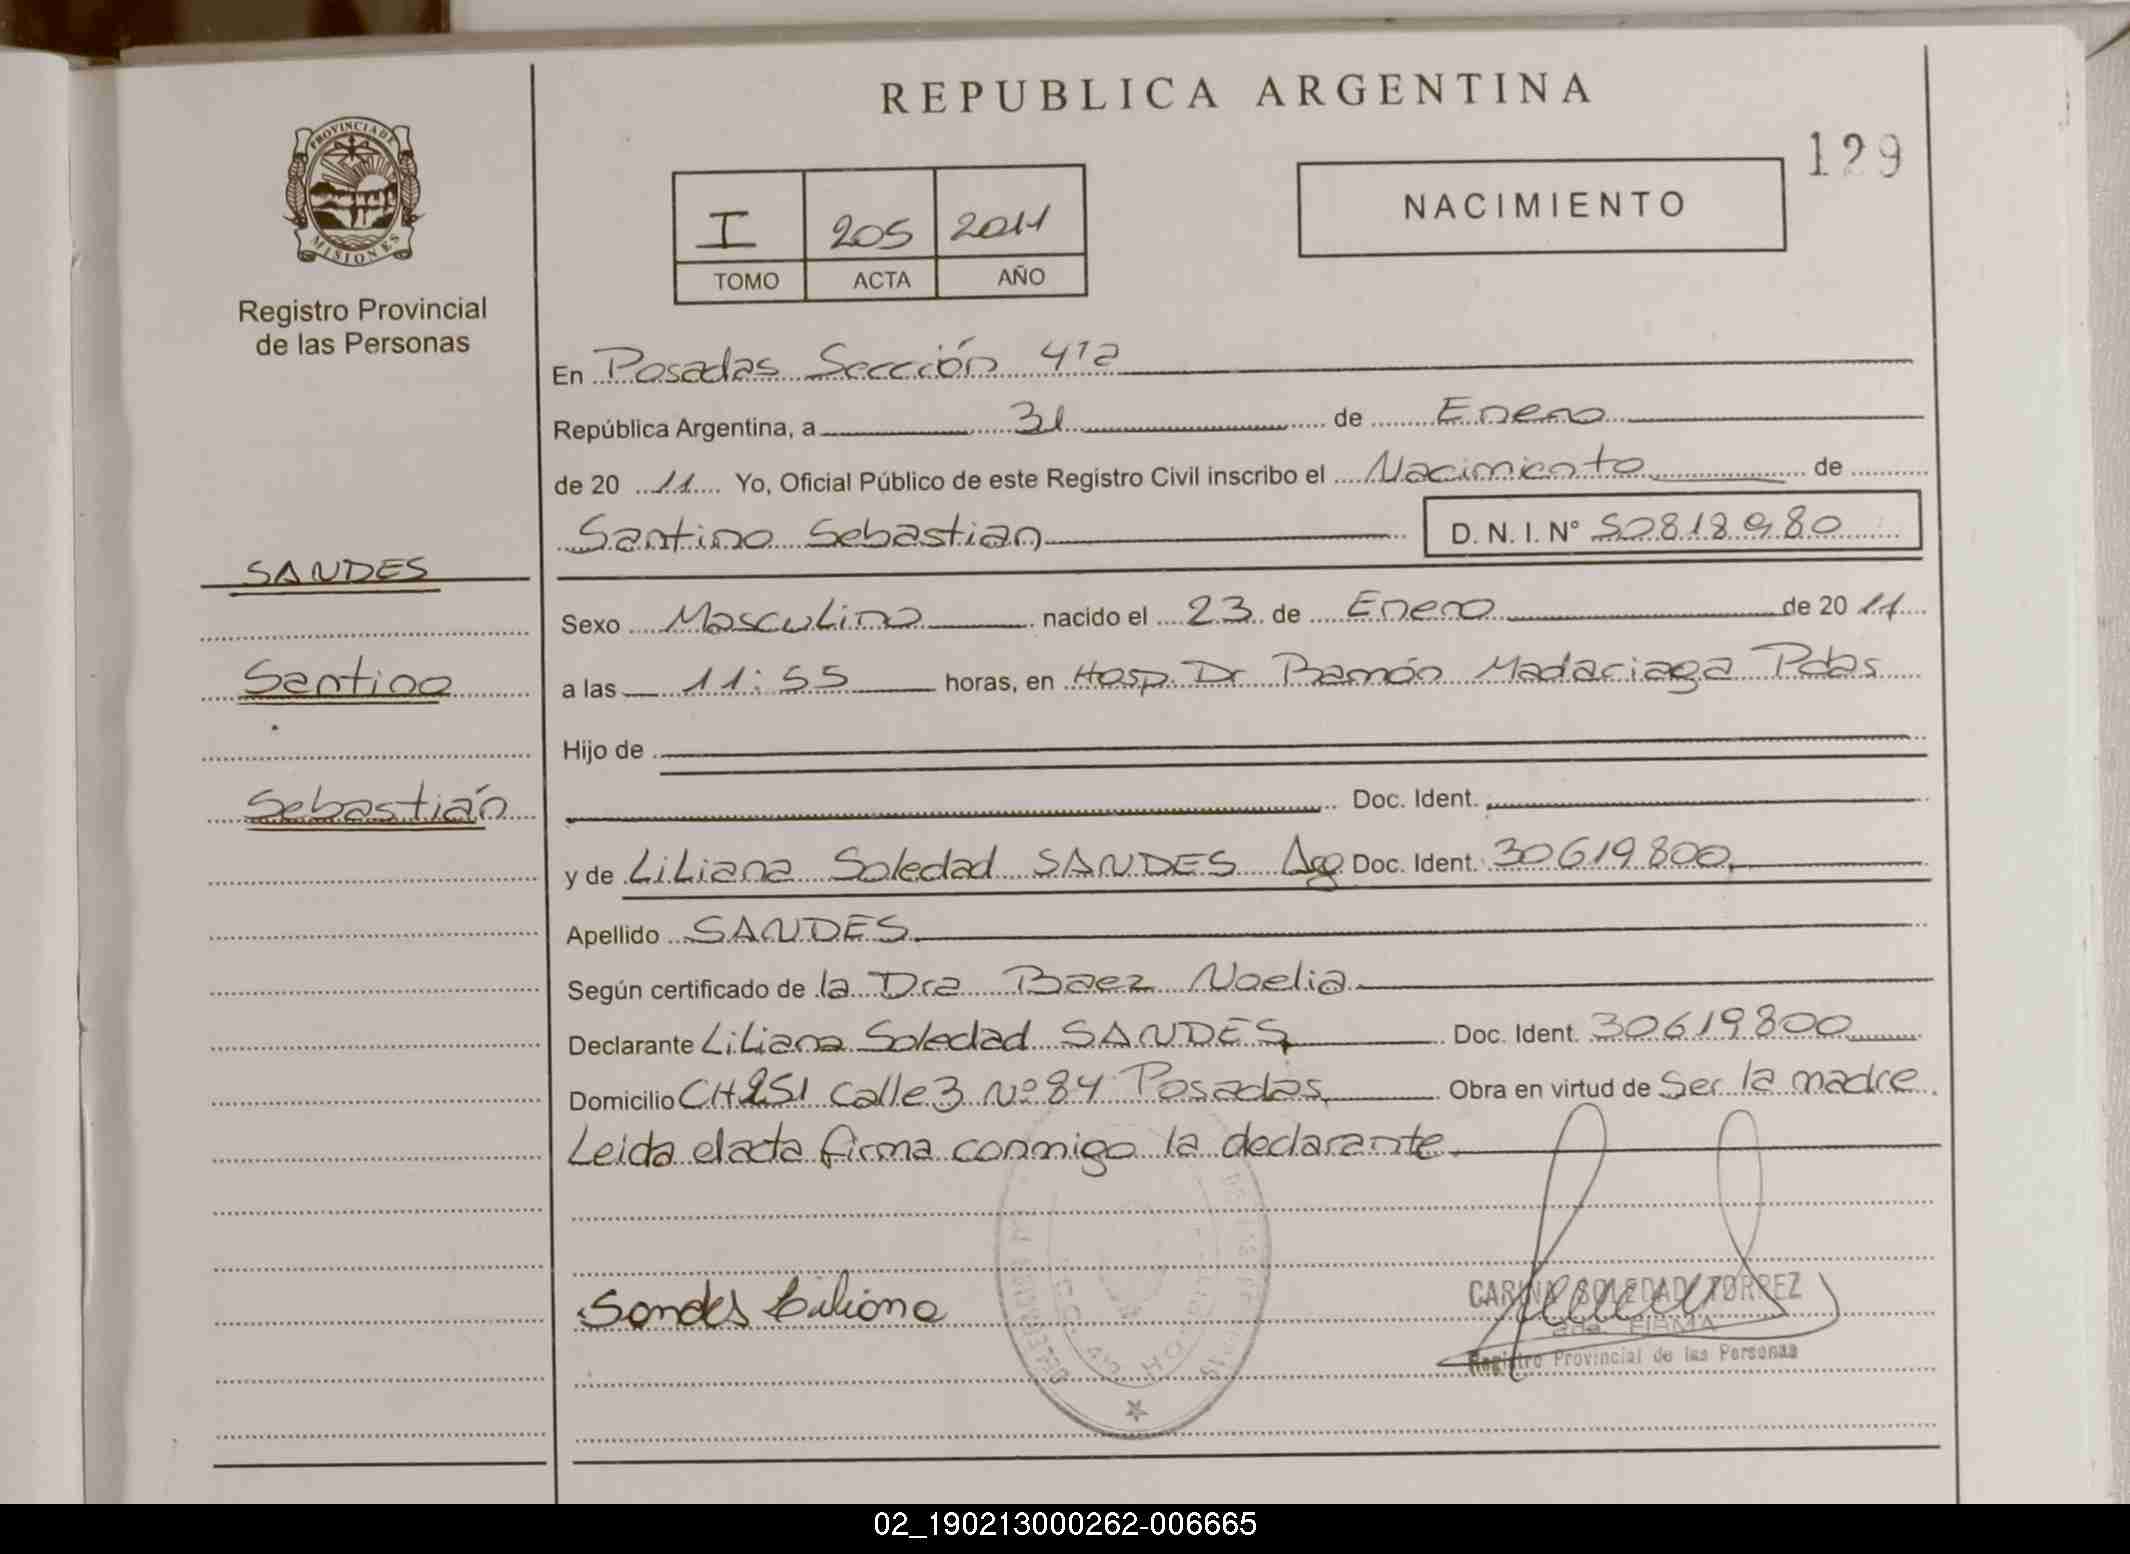 REPUBLICA ARGENTINA
129
PROVINCIA DE
MISIONES
Registro Provincial
de las Personas
I 205 2011
TOMO ACTA AÑO
NACIMIENTO
En Posadas Sección 4ta
República Argentina, a 31 de Enero
de 20 11 Yo, Oficial Público de este Registro Civil inscribo el Nacimiento de
Santino Sebastian D. N. I. N° 50818980
SANDES
Santino
Sebastián
Sexo Masculino nacido el 23 de Enero de 20 11
a las 11:55 horas, en Hosp. Dr Ramón Madariaga Pdas
Hijo de
Doc. Ident.
y de Liliana Soledad SANDES Arg Doc. Ident. 30619800
Apellido SANDES
Según certificado de la Dra Baez Noelia
Declarante Liliana Soledad SANDES Doc. Ident. 30619800
Domicilio CH251 calle 3 Nº 84 Posadas Obra en virtud de Ser la madre
Leida el acta firma conmigo la declarante
Sandes Liliana
CARINA SOLEDAD TORREZ
2da. FIRMA
Registro Provincial de las Personas
02_190213000262-006665